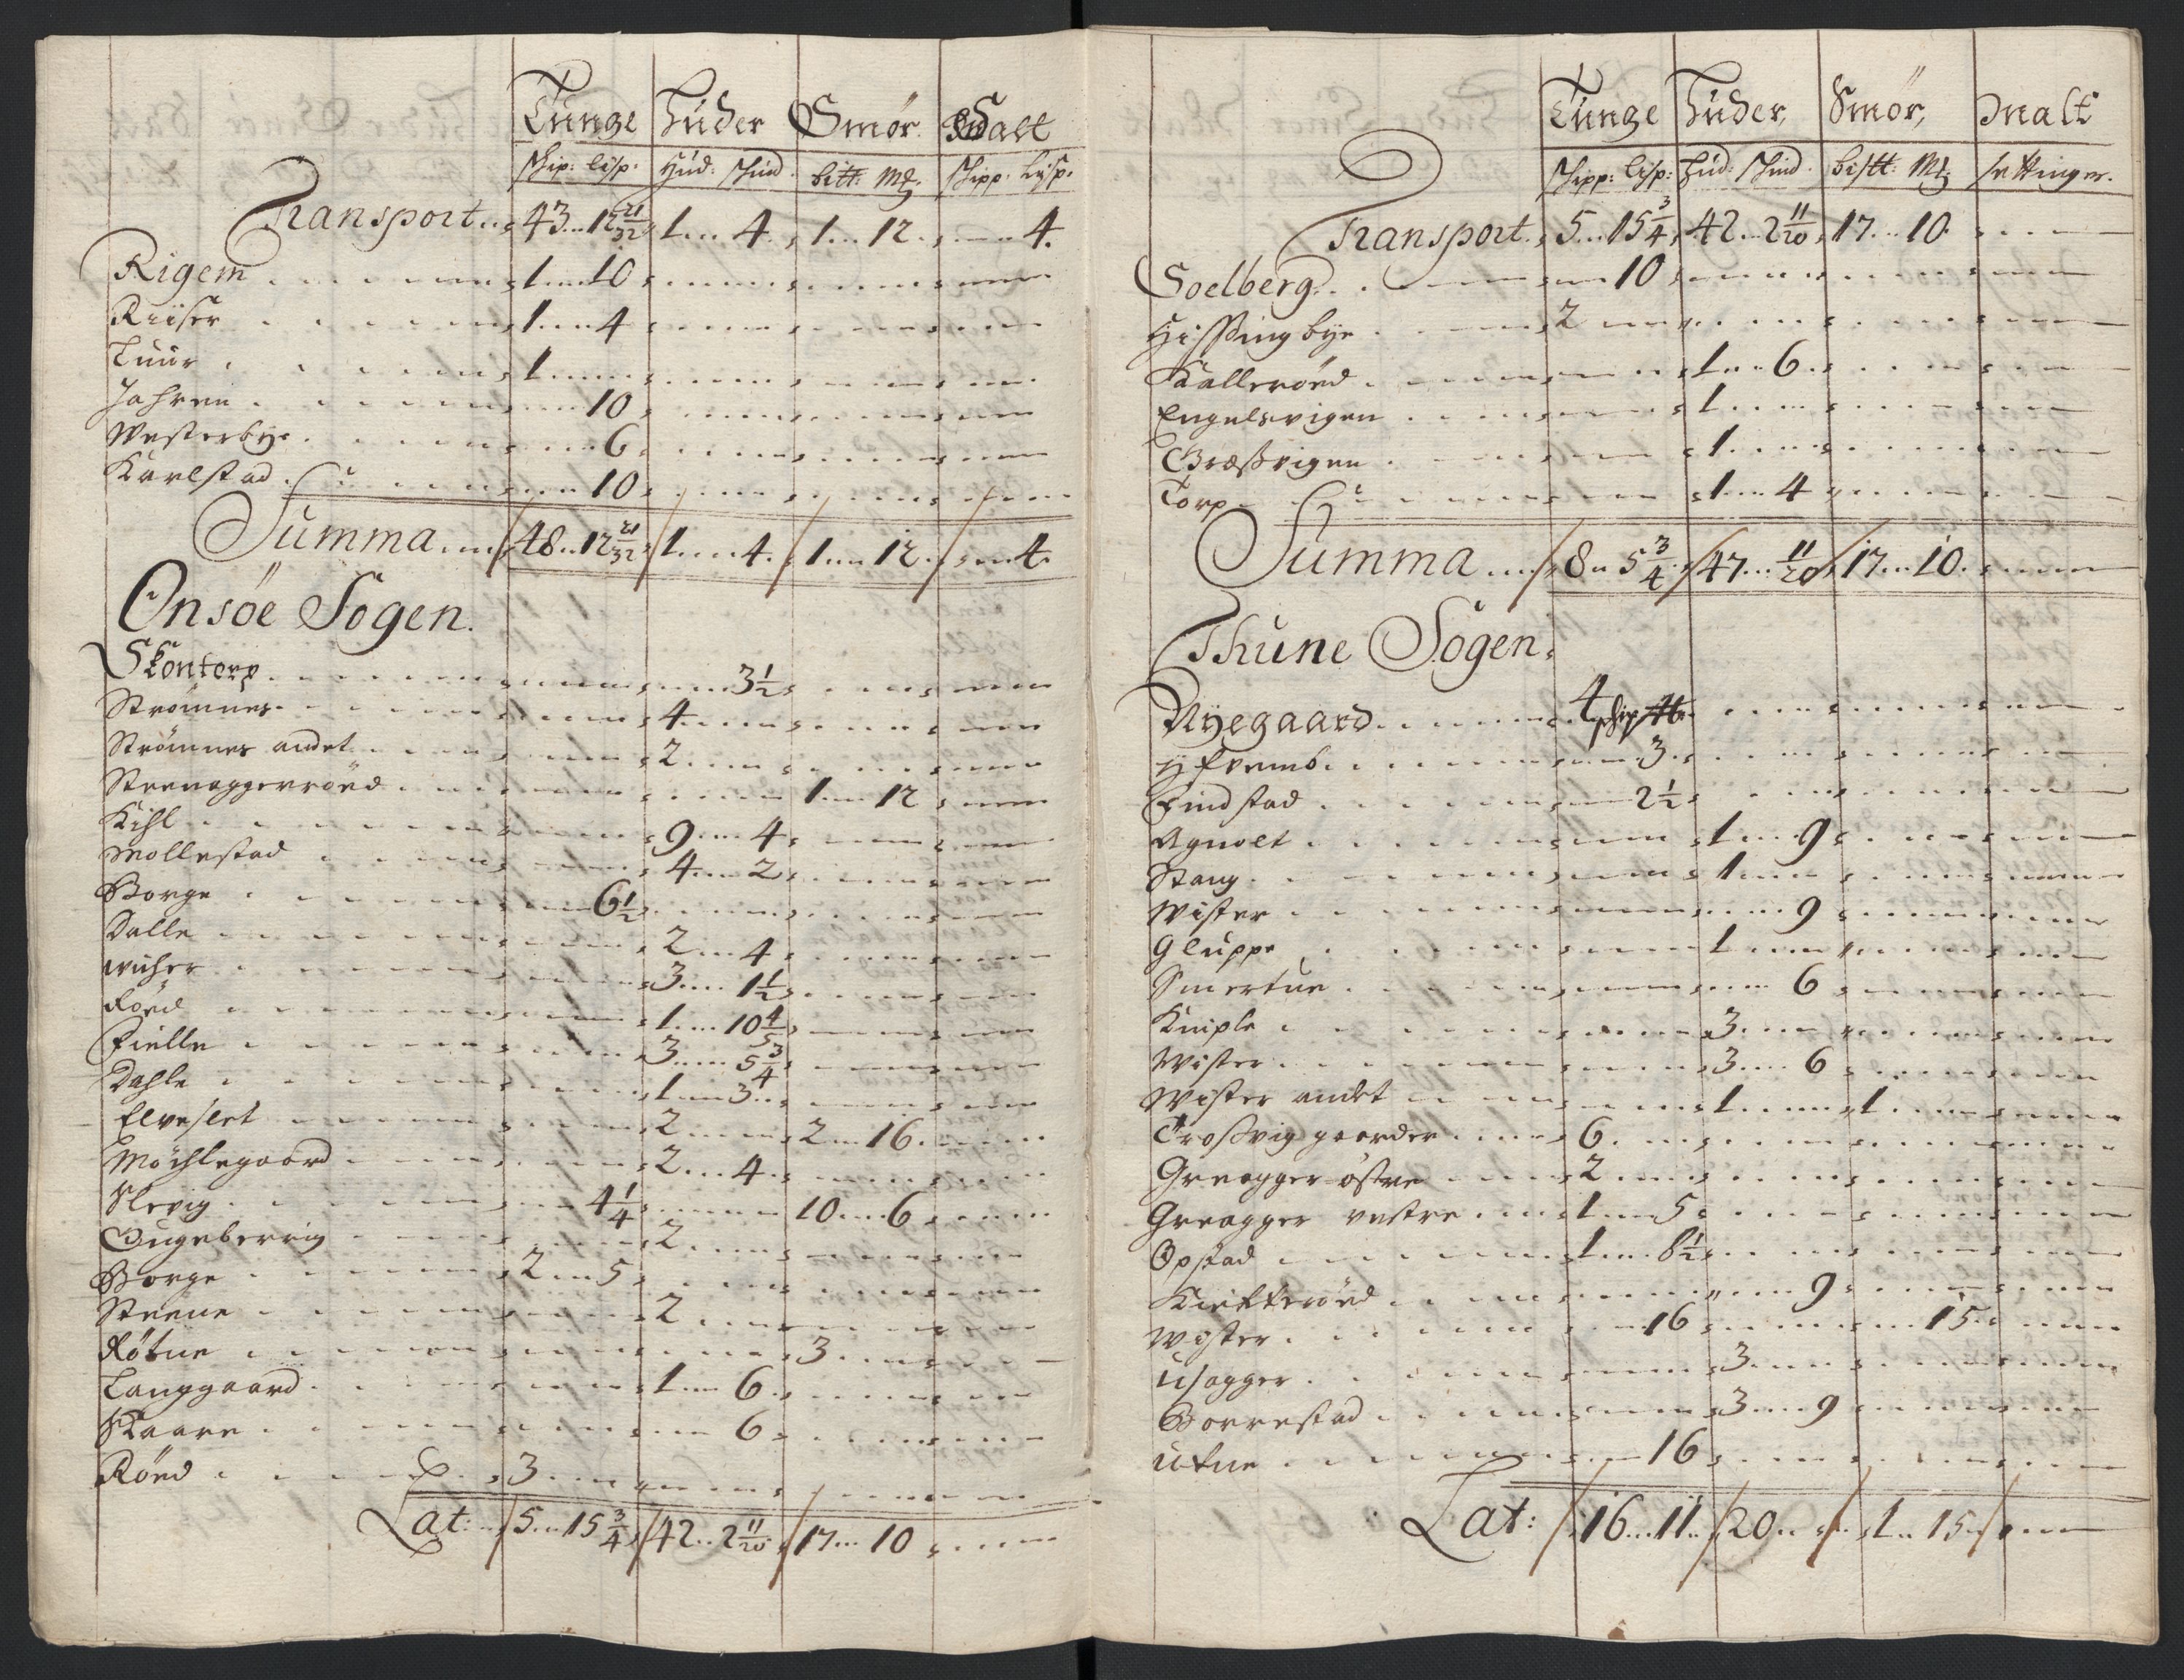 Tunge Huder Smør. Salt
Skip: Lisp. Hud: Skind. bitt: Mk. Skipp. Lisp.
Transport 43 12 21/32 1 4 1 12 4
Rigem 1 10
Riiser 1 4
Tuur 1
Jahren 10
Westerbye 6
Karlstad 10
Summa 48 12 21/32 1 4 1 12 4
Onsøe Sogen.
Skontorp 3 1/2
Strømnes 4
Strømnes andet 2
Steenaggerrøed 1 12
Kihl 9 4
Mollestad 4 2
Borge 6 1/2
Dalle 2 4
3 1 1/2
Røed 1 10 4/5
Fielle 3 5 3/4
Dahle 1 3
Elveslet 2 2 16
Møchlegaard 2 4
Slevig 4 1/4 10 6
Gugeberrig 2
Borge 2 5
Steene 2
Røtne 3
Langgaard 1 6
Skaare 6
Røed 3
Lat: 5 15 3/4 42 2 11/20 17 10
Tunge Huder, Smør, Malt
Skipp: Lisp: Hud: Skind. bistt: Mk Settinger.
Transport 5 15 3/4 42 2 11/20 17 10
Soelberg 10
Hissingbye 2
Kallerøed 1 6
Engelsvigen 1
Græsvigen 1
Torp 1 4
Summa 8 5 3/4 47 11/20 17 10
Thune Sogen.
Nyegaard 4 skip
3
Findstad 2 1/2
Agnolt 1 9
Stang 1
Wister 9
Gluppe 1
Smertue 6
Kniple 3
Wister 3 6
Wister andet 1 1
Trosvig gaarder 6
Greagger østre 2
Greagger vestre 1 5
Opstad 1 8 1/2
Kiekkerøed 9
Wister 16 15
Usagger 3
Borrestad 3 9
Utne 16
Lat: 16 11 20 1 15